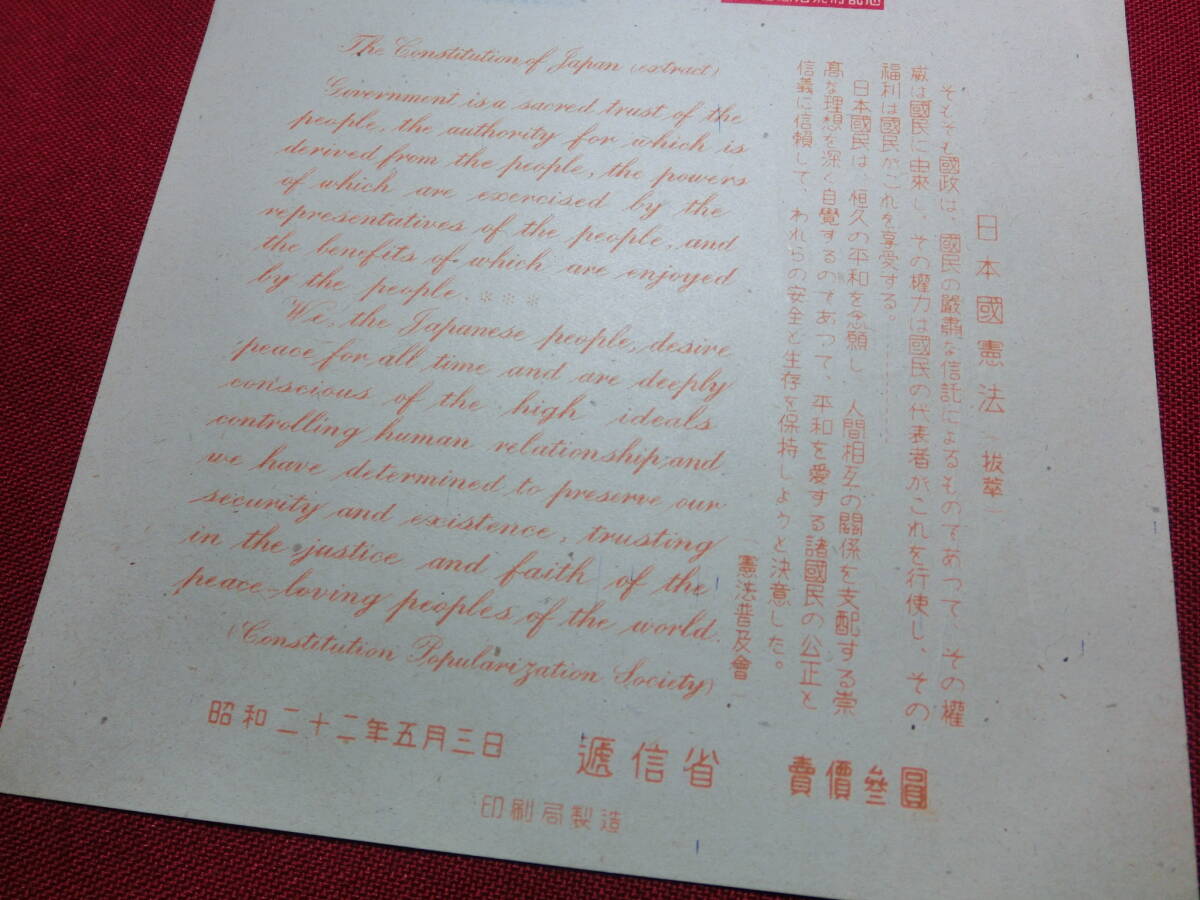 The Constitution of Japan (extract)
Government is a sacred trust of the
people, the authority for which is
derived from the people, the powers
of which are exercised by the
representatives of the people, and
the benefits of which are enjoyed
by the people. ***
We, the Japanese people, desire
peace for all time and are deeply
conscious of the high ideals
controlling human relationship, and
we have determined to preserve our
security and existence, trusting
in the justice and faith of the
peace-loving peoples of the world.
(Constitution Popularization Society)
日本國憲法(抜萃)
そもそも國政は、國民の嚴肅な信託によるものであつて、その權
威は國民に由來し、その權力は國民の代表者がこれを行使し、その
福利は國民がこれを享受する。
日本國民は、恒久の平和を念願し、人間相互の關係を支配する崇
高な理想を深く自覺するのであつて、平和を愛する諸國民の公正と
信義に信頼して、われらの安全と生存を保持しようと決意した。
(憲法普及會)
昭和二十二年五月三日 遞信省 賣價參圓
印刷局製造